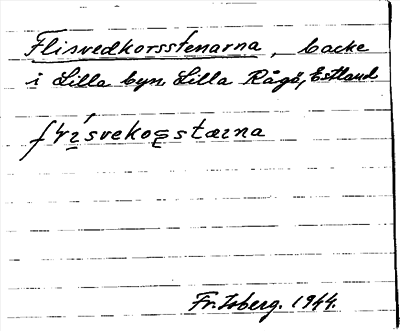 Flisvedkorsstenarna, backe
i Lilla byn, Lilla Rågö, Estland
Fr. Isberg. 1944.